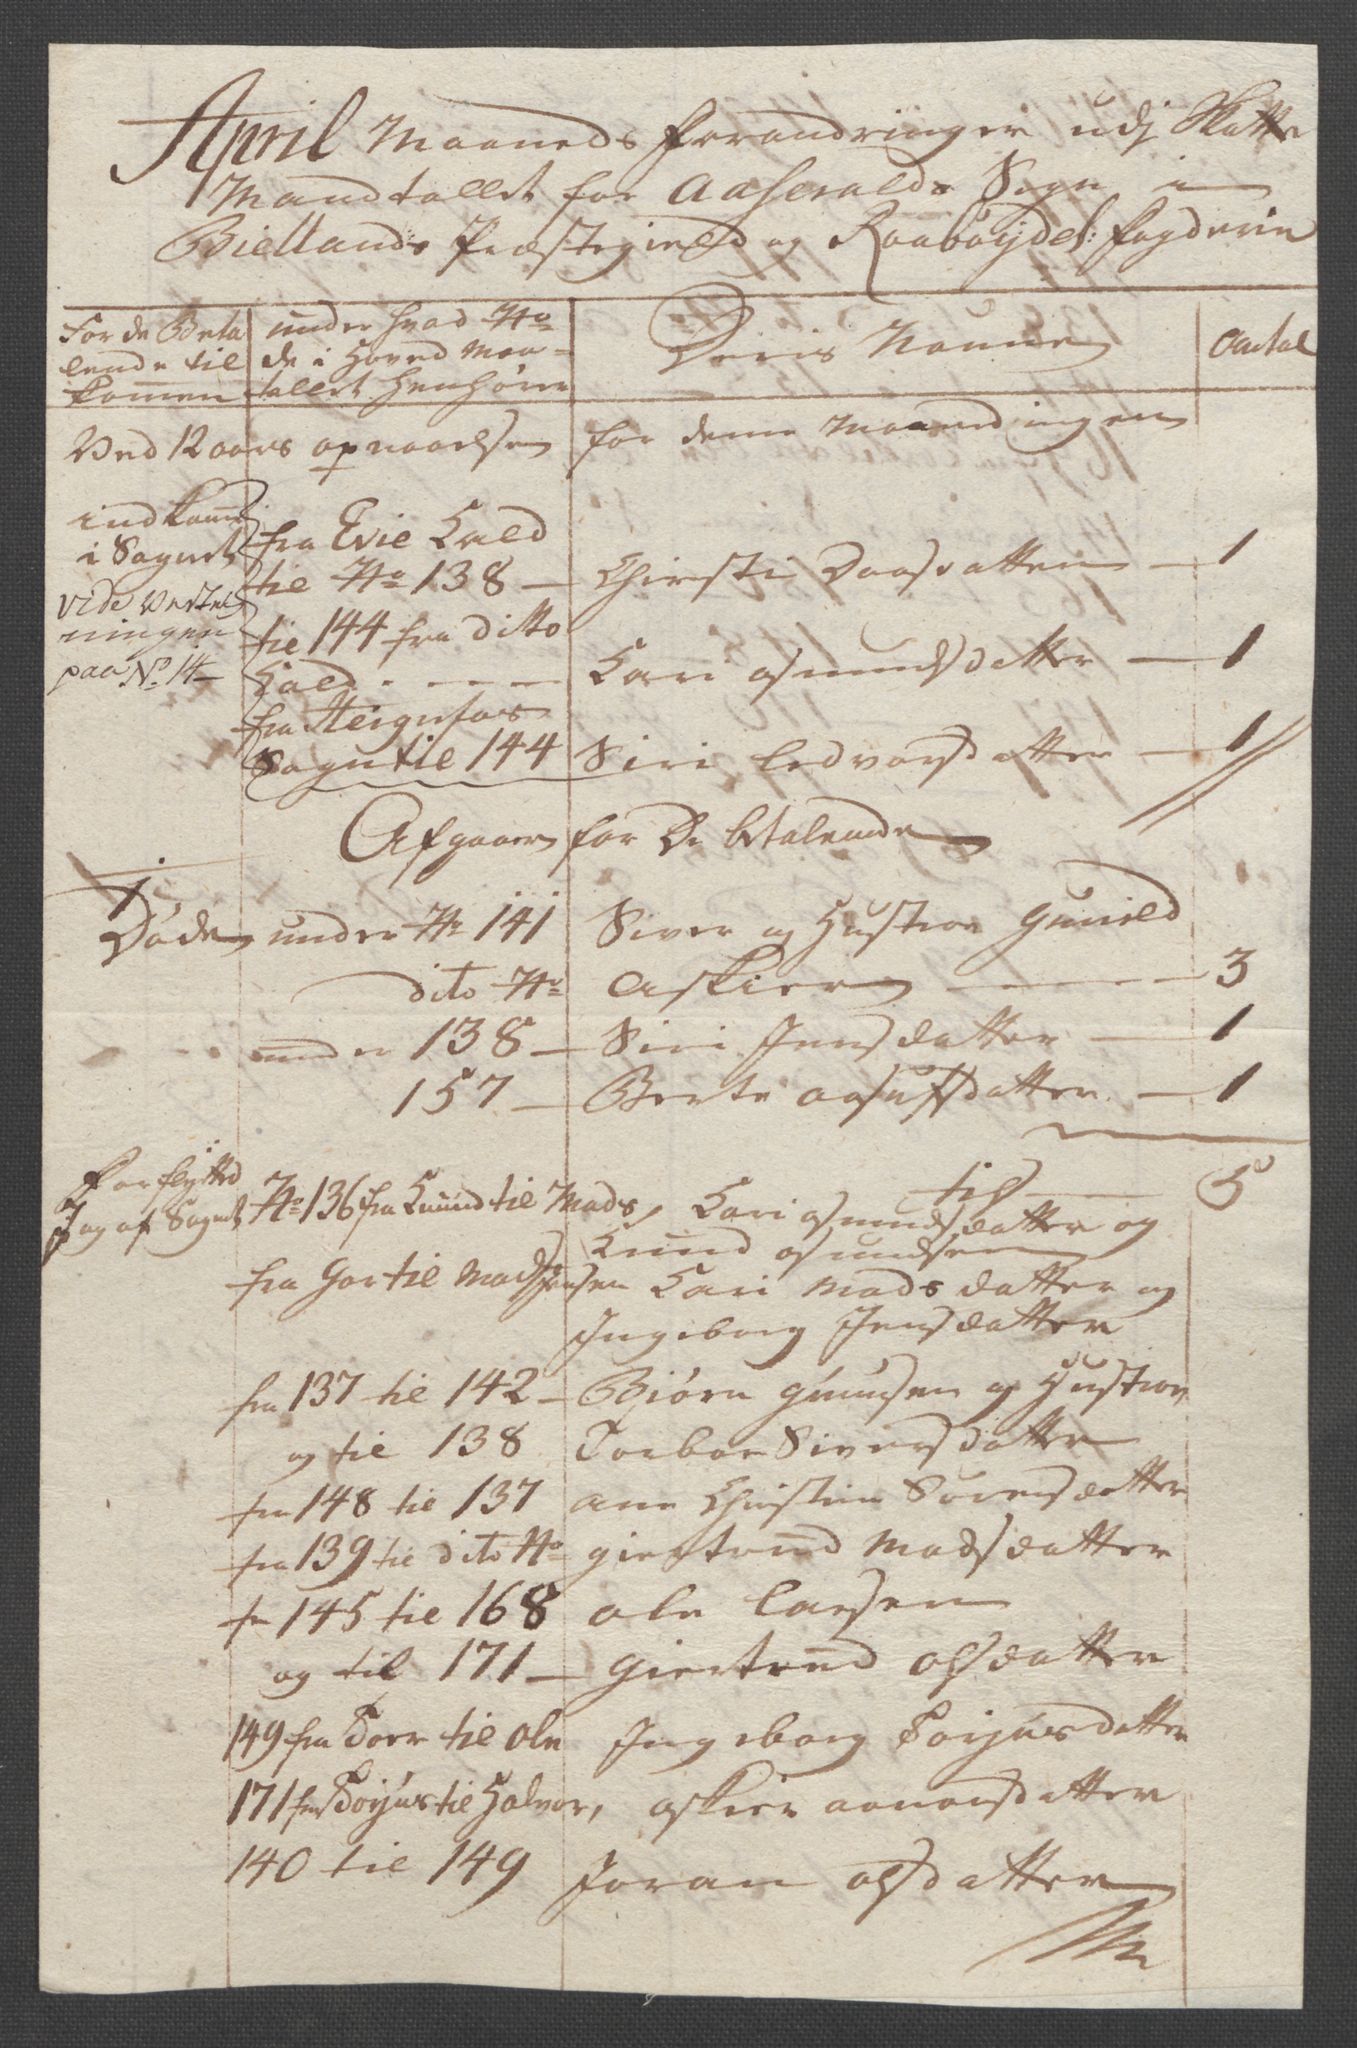 April Maaneds forandringer udj Skatte
Mandtallet for Aaseralds Sogn i
Biellands Præstegield og Raabøydel: fogderie
For de Beta
lende til
kommen
under hvad No
de i Hoved Man-
tallet henhører
Deris Naune
Antal
Ved 12 aars opnaaelse for denne Maaned ingen
indkomne
i Sognet
vide
paa No 14
fra Evie Gield
til No 138 - Chirsti Daasdatter - 1
til 144 fra ditto
Gield - - - Cari osmundsdatter - 1
fra
Sogn til 144 Siri Ledvorsdatter - 1
Afgaaer for De betalende
Døde under No 141 Siver og Hustroe Gunild
dito No Askier - - - 3
under 138 - Siri Jensdatter - 1
157 - Berte datter - 1
5
Forflytted
J og af Sognet No 136 fra Knud til Mads, Cari osmundsdatter og
Knud osmundsen
fra Gor til Mads Jensen Cari Madsdatter og
Ingeborg Jensdatter
fra 137 til 142 - Biørn Gunusen og Hustroe
og til 138 Torbor Siversdatter
fra 148 til 137 ane Christine Sørensdatter
fra 139 til dito No giertrud Madsdatter
fra 145 til 168 ole Larsen
og til 171 - Giertrud olsdatter
149 fra Torr til Ole Ingeborg Torjusdatter
171 fra Torjus til Halvor, askier aanonsdatter
140 til 149 Joran olsdatter